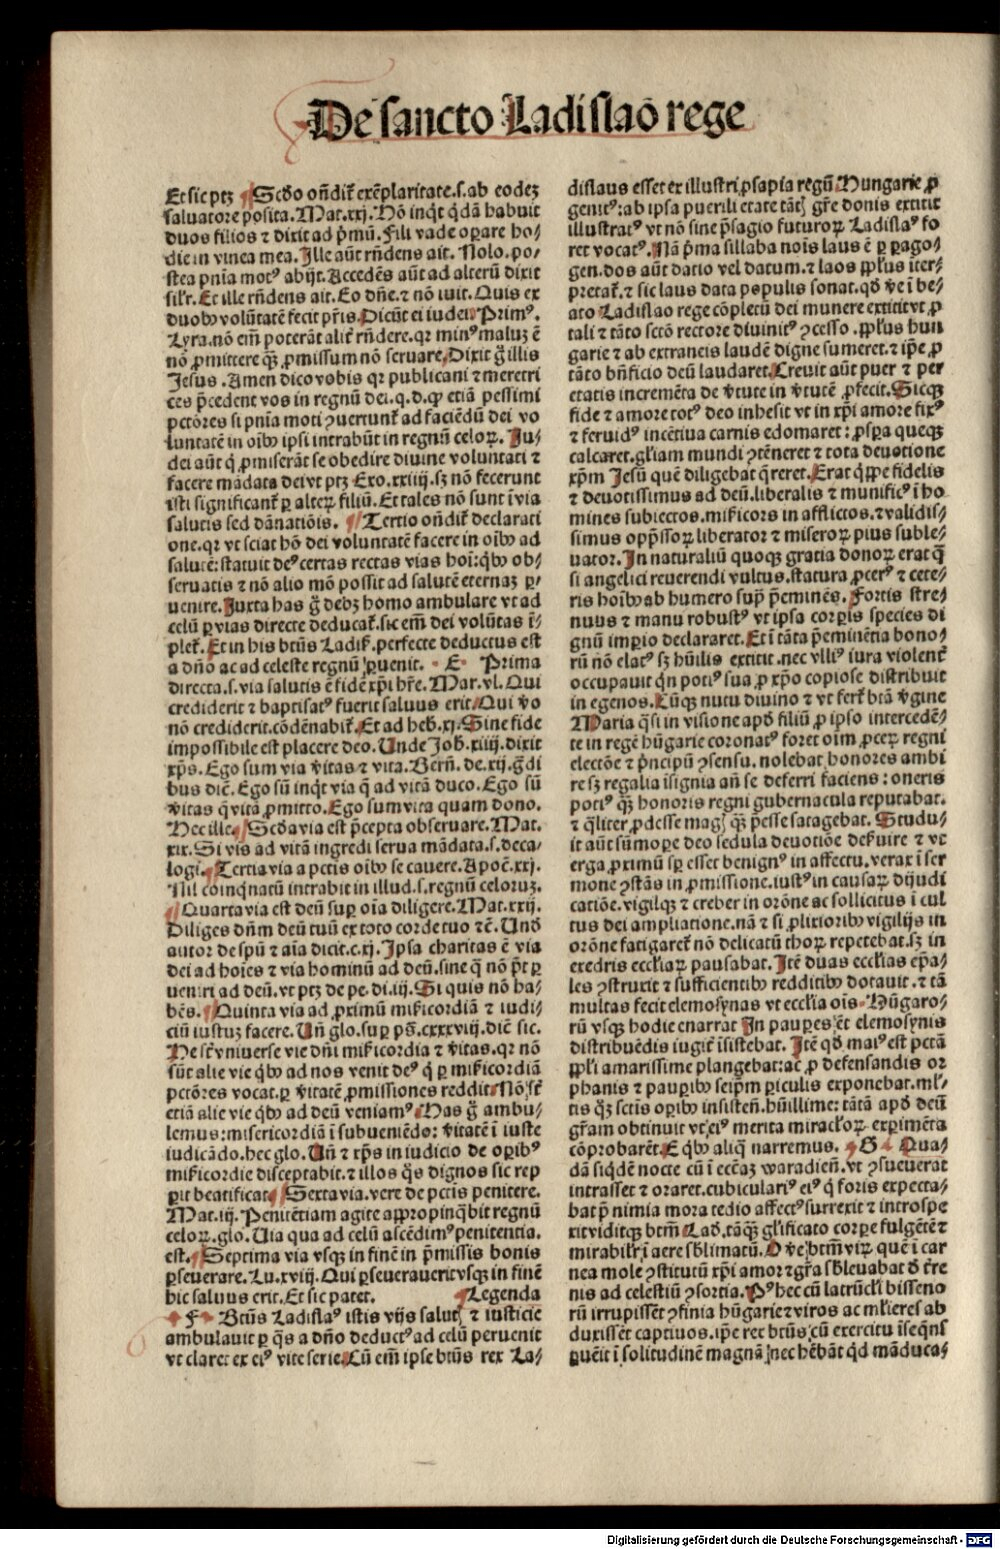 De sancto Ladislaō rege
Et sic ptꝫ ¶ Scd̄o on̄dit̄ exēplaritate.s.ab eodeꝫ
saluatore posita.Mat.xxj.Hō inq̄t q̄dā habuit
duos filios ⁊ dixit ad p̄mū.Fili vade oꝑare ho⸗
die in vinea mea.Ille aūt rn̄dens ait.Nolo.po⸗
stea pn̄ia motꝰ abijt.Accedēs aūt ad alterū dixit
silr̄.Et ille rn̄dens ait.Eo dn̄e.⁊ nō iuit.Quis ex
duobꝫ volūtatē fecit pr̄is.Dicūt ei iudei.Primꝰ.
Lyra.nō em̄ poterāt alit̄ rn̄dere.qꝛ minꝰ maluꝫ ē
nō ꝓmittere qꝫ̄ ꝓmissum nō seruare.Dixit ḡ illis
Jesus.Amen dico vobis qꝛ publicani ⁊ meretri
ces p̄cedent vos in regnū dei.q.d.ꝙ etiā pessimi
pctōres si pn̄ia moti ꝯuertunt̄ ad faciēdū dei vo
luntatē in oībꝫ ipsi intrabūt in regnū celoꝝ. Ju⸗
dei aūt q̄ ꝓmiserāt se obedire diuine voluntati ⁊
facere mādata dei vt ptꝫ Exo.xxiiij.sꝫ nō fecerunt
isti significant̄ ꝑ alteꝝ filiū.Et tales nō sunt ī via
salutis sed dānatiōis. ¶ Tertio on̄dit̄ declarati
one.qꝛ vt sciat hō dei voluntatē facere in oībꝫ ad
salutē:statuit deꝰ certas rectas vias hoī:q̄bꝫ ob⸗
seruatis ⁊ nō alio mō possit ad salutē eternaꝫ ꝑ⸗
uenire.Juxta has ḡ debꝫ homo ambulare vt ad
celū ꝑ vias directe deducat̄.sic em̄ dei volūtas ī⸗
plet̄.Et in his btūs Ladisl̄.perfecte deductus est
a dn̄o ac ad celeste regnū ꝑuenit. · E · Prima
directa.s.via salutis ē fidē xp̄i hr̄e.Mar.vl.Qui
crediderit ⁊ baptisatꝰ fuerit saluus erit.Qui v̄o
nō crediderit.cōdēnabit̄.Et ad heb.xj.Sine fide
impossibile est placere deo.Unde Joh.xiiij.dixit
xp̄s.Ego sum via v̄itas ⁊ vita.Bern̄.de.xij.g̅di
bus diē.Ego sū inq̄t via q̄ ad vitā duco.Ego sū
v̄itas q̄ vitā ꝓmitto.Ego sum vita quam dono.
Hec ille.¶ Scd̄a via est p̄cepta obseruare.Mat.
xix.Si vis ad vitā ingredi serua mādata.s.deca⸗
logi.¶Tertia via a pctis oībꝫ se cauere.Apoc̄.xxj.
Nil coinq̄natū intrabit in illud.s.regnū celoruꝫ.
¶ Quarta via est deū suꝑ oīa diligere.Mat.xxij.
Diliges dn̄m deū tuū ex toto corde tuo ⁊c̄.Und̄
autor de spū ⁊ aīa dicit.c.xj.Ipsa charitas ē via
dei ad hoīes ⁊ via hominū ad deū.sine q̄ nō p̄t ꝑ
ueniri ad deū.vt ptꝫ de pe.di.ij.Si quis nō ha⸗
bēs.¶Quinta via ad ꝓximū mīcordiā ⁊ iudi⸗
ciū iustuꝫ facere.Un̄ glo.suꝑ ps̄.cxxxviij.diē sic.
He sc̄t vniuerse vie dn̄i mīcordia ⁊ v̄itas.qꝛ nō
sūt alie vie q̄bꝫ ad nos venit deꝰ q̄ ꝑ mīcordiā
pctōres vocat.ꝑ v̄itatē ꝓmissiones reddit.Nō st̄
etiā alie vie q̄bꝫ ad deū veniamꝰ.Has ḡ ambu⸗
lemus:misericordiā ī subueniēdo:v̄itatē ī iuste
iudicādo.hec glo.Un̄ ⁊ xp̄s in iudicio de oꝑibꝰ
mīcordie disceptabit.⁊ illos q̄s dignos sic rep
ꝑit beatificat.¶ Sexta via.vere de pctis penitere.
Mat.iij.Penitētiam agite appropinq̄bit regnū
celoꝝ.glo.Uia qua ad celū ascēdimꝰ penitentia.
est.¶Septima via vsqꝫ in finē in p̄missis bonis
ꝑseuerare.Lu.xviij.Qui ꝑseuerauerit vsqꝫ in finē
hic saluus erit.Et sic patet. ¶Legenda
F · Btūs Ladislaꝰ istis vijs salut̄ ⁊ iusticie
ambulauit ꝑ q̄s a dn̄o deductꝰ ad celū peruenit
vt claret ex eiꝰ vite serie.Cū em̄ ipse btūs rex La⸗
dislaus esset ex illustri ꝓsapia regū Hungarie ꝓ
genitꝰ:ab ipsa puerili etate tāt̄ gr̄e donis extitit
illustratꝰ vt nō sine p̄sagio futuroꝝ Ladislaꝰ fo
ret vocatꝰ.Nā p̄ma sillaba nois laus ē ꝑ ꝑago⸗
gen.dos aūt datio vel datum.⁊ laos ppl̄us iter⸗
pretat̄.⁊ sic laus data populis sonat.qd̄ vē ī be⸗
ato Ladislao rege cōpletū dei munere extitit vt ꝓ
tali ⁊ tāto sctō rectore diuinitꝰ ꝯcesso .ppl̄us hun
garie ⁊ ab extraneis laudē digne sumeret.⁊ ip̄e ꝓ
tāto bn̄ficio deū laudaret.Creuit aūt puer ⁊ per
etatis incremēta de v̄tute in v̄tutē ꝓfecit.Sicqꝫ
fide ⁊ amore totꝰ deo inhesit vt in xp̄i amore fixꝰ
⁊ feruidꝰ incētiua carnis edomaret:ꝓsꝑa queqꝫ
calcaret.gl̄iam mundi ꝯtēneret ⁊ tota deuotione
xp̄m Jesū quē diligebat q̄reret.Erat q̄ꝑpe fidelis
⁊ deuotissimus ad deū.liberalis ⁊ munificꝰ ī ho
mines subiectos.mīcors in afflictos.⁊ validis⸗
simus opp̄ssoꝝ liberator ⁊ miseroꝝ pius suble⸗
uator.In naturaliū quoqꝫ gratia donoꝝ erat q̄
si angelici reuerendi vultus.statura ꝓcerꝰ ⁊ cete⸗
ris hoībꝫ ab humero sup̄ p̄eminēs.Fortis stre⸗
nuus ⁊ manu robustꝰ vt ipsa corꝑis species di
gnū imꝑio declararet.Et ī tāta p̄eminētia hono⸗
rū nō elatꝰ sꝫ hūilis extitit.nec vlliꝰ iura violent̄
occupauit q̄n potiꝰ sua ꝓ xp̄o copiose distribuit
in egenos.Cūqꝫ nutu diuino ⁊ vt fert̄ btā v̄gine
Maria q̄si in visione apd̄ filiū ꝓ ipso intercedē⸗
te in regē hūgarie coronatꝰ foret oīm ꝓceꝝ regni
electōe ⁊ p̄ncipū ꝯsensu.nolebat honores ambi
re sꝫ regalia īsignia an̄ se deferri faciens:oneris
potiꝰ qꝫ̄ honoris regni gubernacula reputabat.
⁊ q̄liter ꝓdesse maḡ qꝫ̄ p̄esse satagebat. Studu⸗
it aūt sūmoꝑe deo sedula deuotiōe deẜuire ⁊ vt
erga ꝓximū sꝑ esset benignꝰ in affectu.verax ī ser
mone ꝯstās in ꝓmissione.iustꝰ in causaꝝ dijudi
catiōe.vigilqꝫ ⁊ creber in orōne ac sollicitus ī cul
tus dei ampliatione.nā ⁊ si ꝓlixioribꝫ vigilijs in
orōne fatigaret̄ nō delicatū thoꝝ repetebat.sꝫ in
exedris eccl̄iaꝝ pausabat.Itē duas eccl̄ias ep̄a⸗
les ꝯstruxit ⁊ sufficientibꝫ redditibꝫ dotauit.⁊ tā
multas fecit elemosynas vt eccl̄ia oīs Hūgaro⸗
rū vsqꝫ hodie enarrat In pauꝑes et̄ elemosynis
distribuēdis iugit̄ īsistebat. Itē qd̄ maiꝰ est pctā
ppl̄i amarissime plangebat:ac ꝓ defensandis or
phanis ⁊ pauꝑibꝫ seip̄m ꝑiculis exponebat.ml̄⸗
tis qꝫ sctis oꝑibꝫ insisten̄.hūillime:tātā apd̄ deū
gr̄am obtinuit vt eiꝰ merita miracl̄oꝝ exꝑimēta
cōprobarēt.E q̄bꝫ aliq̄ narremus. ¶ G · Qua⸗
dā siqdē nocte cū ī ecc̄aꝫ waradien̄.vt ꝯsueuerat
intrasset ⁊ oraret.cubiculariꝰ eiꝰ q̄ foris expecta⸗
bat p̄ nimia mora tedio affectꝰ surrexit ⁊ introspe
xit viditqꝫ btm̄ Lad̄.tāqꝫ̄ gl̄ificato corꝑe fulgētē ⁊
mirabilr̄ ī aere sb̄limatū.O v̄e btm̄ viꝝ quē ī car
nea mole ꝯstitutū xp̄i amor ⁊ gr̄a sb̄leuabat d̄ t̄re
nis ad celestiū ꝯsortia.Pꝰ hec cū latrūcl̄i bisseno
rū irrupissēt ꝯfinia hūgarie ⁊ viros ac ml̄ieres ab
duxissēt captiuos.ip̄e rex btūs cū exercitu īseq̄ns
ꝑuēit ī solitudinē magnā nec hēbāt qd̄ māduca⸗
Digitalisierung gefördert durch die Deutsche Forschungsgemeinschaft - DFG